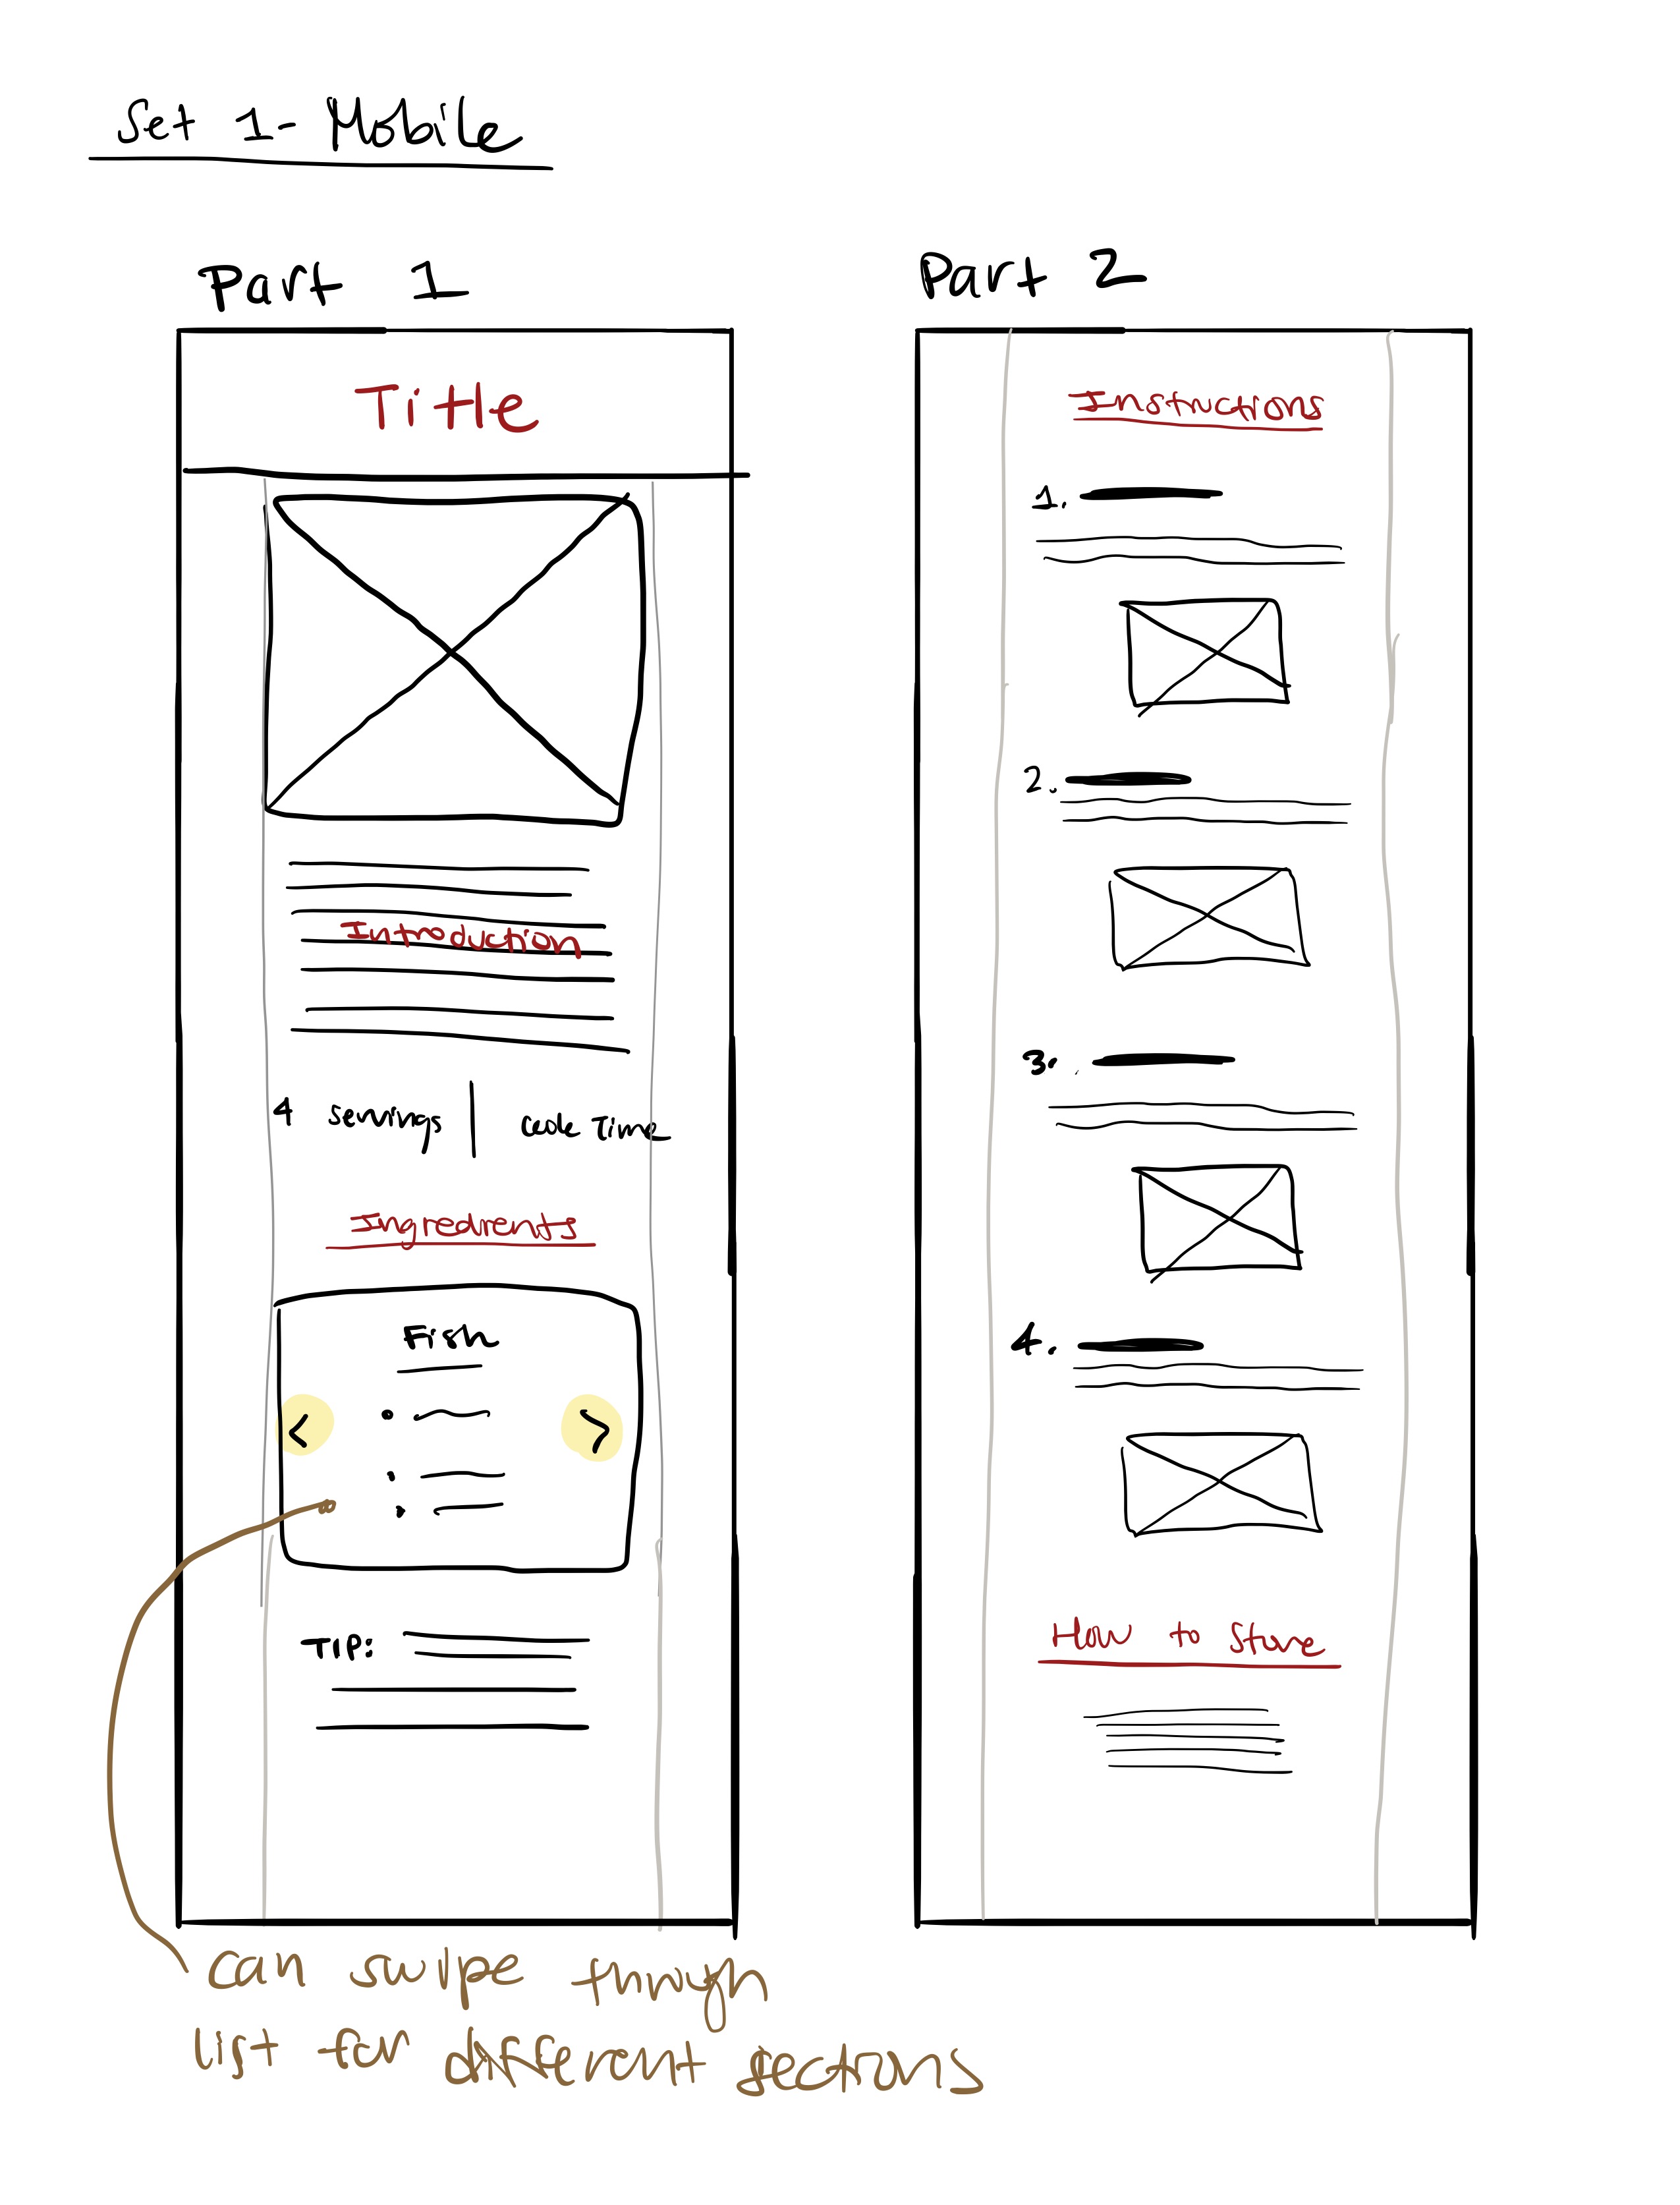 Set 1- Mobile
Part 1
Title
Introduction
4 servings | cook Time
Ingredients
Fish
< >
TIP:
can swipe through
list for different sections
Part 2
Instructions
1.
2.
3.
4.
How to Store